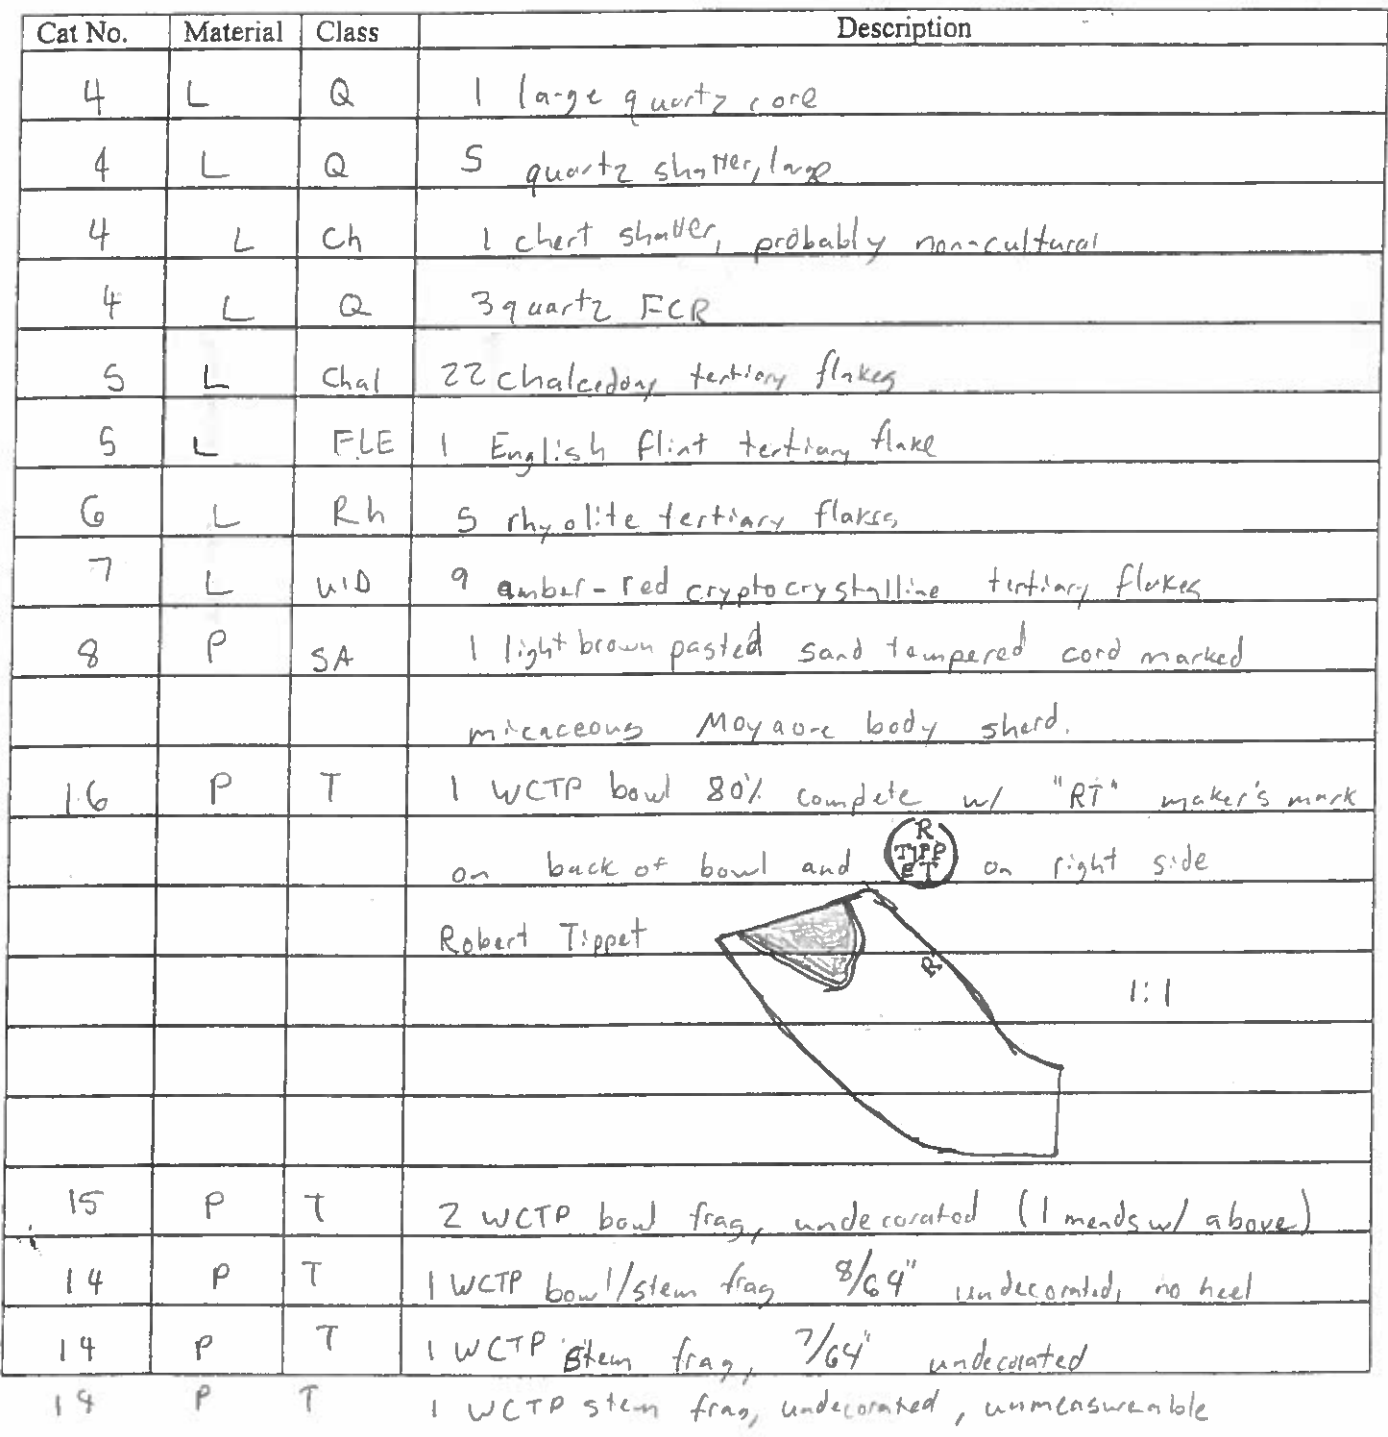 Cat No. Material Class Description
4 L Q 1 large quartz core
4 L Q 5 quartz shatter, large
4 L Ch 1 chert shatter, probably non-cultural
4 L Q 3 quartz FCR
5 L Chal 22 chalcedony tertiary flakes
5 L FLE 1 English flint tertiary flake
6 L Rh 5 rhyolite tertiary flakes
7 L UID 9 amber-red cryptocrystalline tertiary flakes
8 P SA 1 light brown pasted sand tempered cord marked
micaceous Moyaone body sherd.
16 P T 1 WCTP bowl 80% complete w/ "RT" maker's mark
on back of bowl and R TIPP ET on right side
Robert Tippet
R
1:1
15 P T 2 WCTP bowl frag, undecorated (1 mends w/ above)
14 P T 1 WCTP bowl/stem frag 8/64" undecorated, no heel
14 P T 1 WCTP stem frag, 7/64" undecorated
14 P T 1 WCTP stem frag, undecorated, unmeasureable